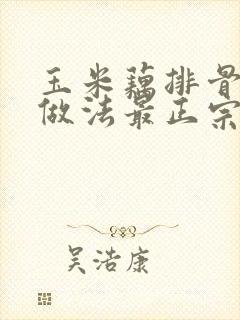 玉米藕排骨
做法最正宗
吴浩康